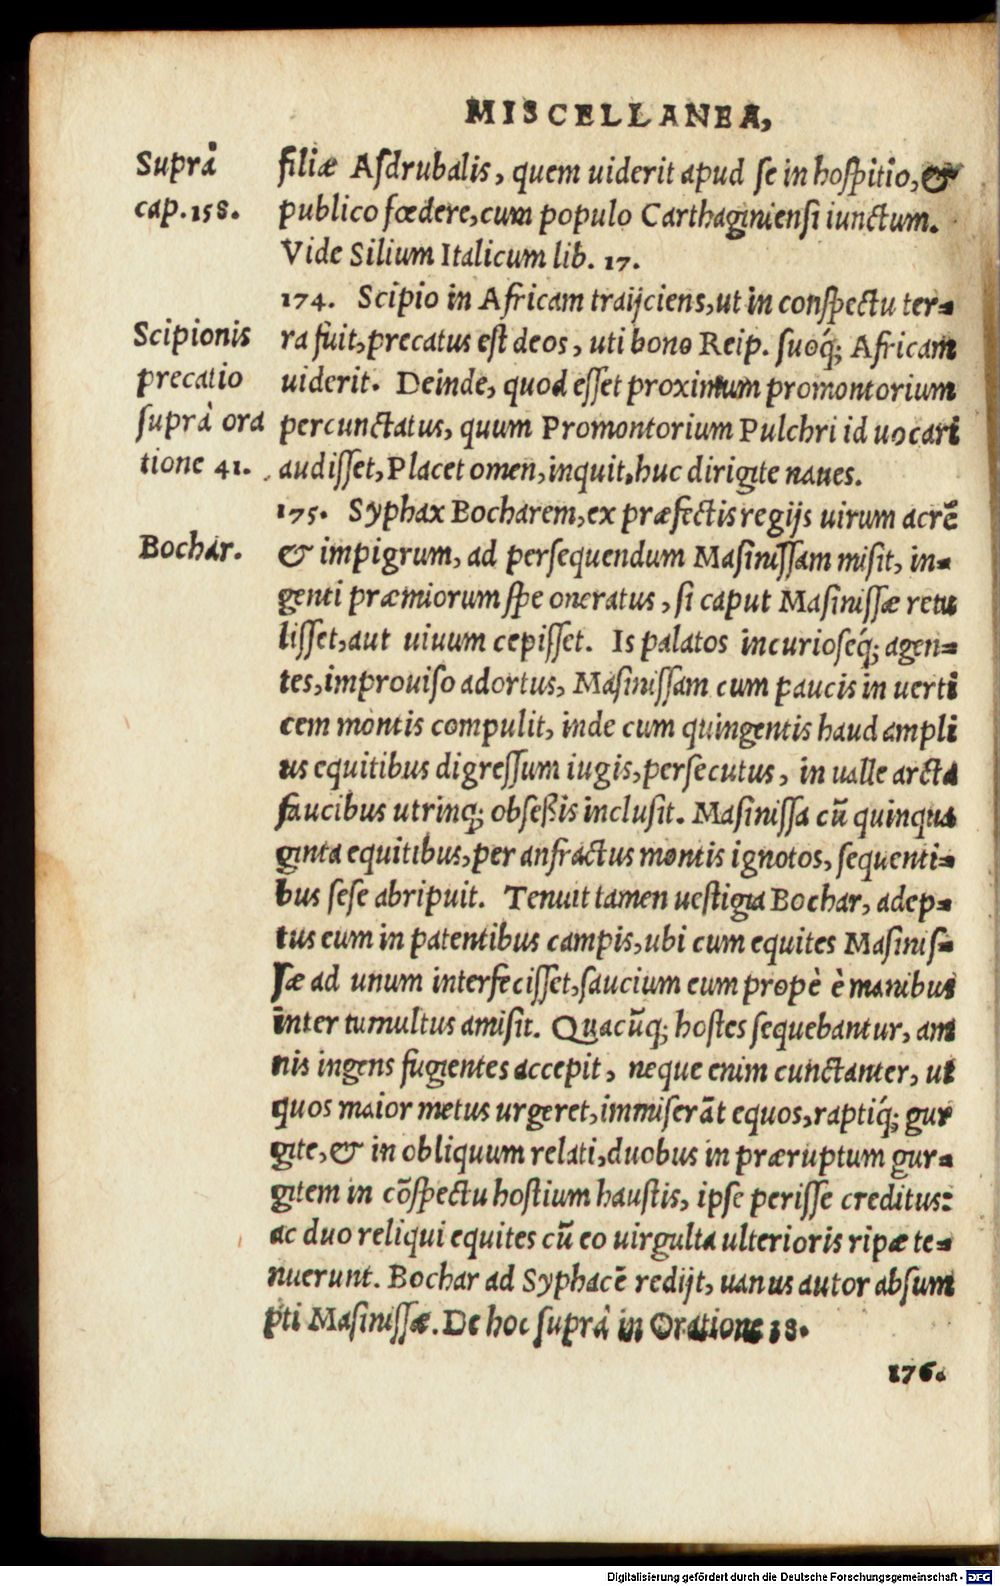 MISCELLANEA,
Suprà
cap. 158.
filiæ Asdrubalis, quem uiderit apud se in hospitio, &
publico fœdere, cum populo Carthaginiensi iunctum.
Vide Silium Italicum lib. 17.
174. Scipio in Africam traijciens, ut in conspectu ter-
Scipionis
precatio
suprà ora
tione 41.
ra fuit, precatus est deos, uti bono Reip. suoq́; Africam
uiderit. Deinde, quod esset proximum promontorium
percunctatus, quum Promontorium Pulchri id uocari
audisset, Placet omen, inquit, huc dirigite naues.
175. Syphax Bocharem, ex præfectis regijs uirum acrẽ
Bochar.
& impigrum, ad persequendum Masinissam misit, in-
genti præmiorum spe oneratus, si caput Masinissæ retu
lisset, aut uiuum cepisset. Is palatos incurioseq́; agen-
tes, improuiso adortus, Masinissam cum paucis in uerti
cem montis compulit, inde cum quingentis haud ampli
us equitibus digressum iugis, persecutus, in ualle arcta
faucibus utrinq; obseßis inclusit. Masinissa cũ quinqua
ginta equitibus, per anfractus montis ignotos, sequenti-
bus sese abripuit. Tenuit tamen uestigia Bochar, adep-
tus eum in patentibus campis, ubi cum equites Masinis-
sæ ad unum interfecisset, saucium eum propè è manibus
inter tumultus amisit. Quacũq; hostes sequebantur, am
nis ingens fugientes accepit, neque enim cunctanter, ut
quos maior metus urgeret, immiserãt equos, raptiq́; gur
gite, & in obliquum relati, duobus in præruptum gur-
gitem in cõspectu hostium haustis, ipse perisse creditus:
ac duo reliqui equites cũ eo uirgulta ulterioris ripæ te-
nuerunt. Bochar ad Syphacẽ redijt, uanus autor absum
pti Masinissæ. De hoc suprà in Oratione 38.
176.
Digitalisierung gefördert durch die Deutsche Forschungsgemeinschaft - DFG